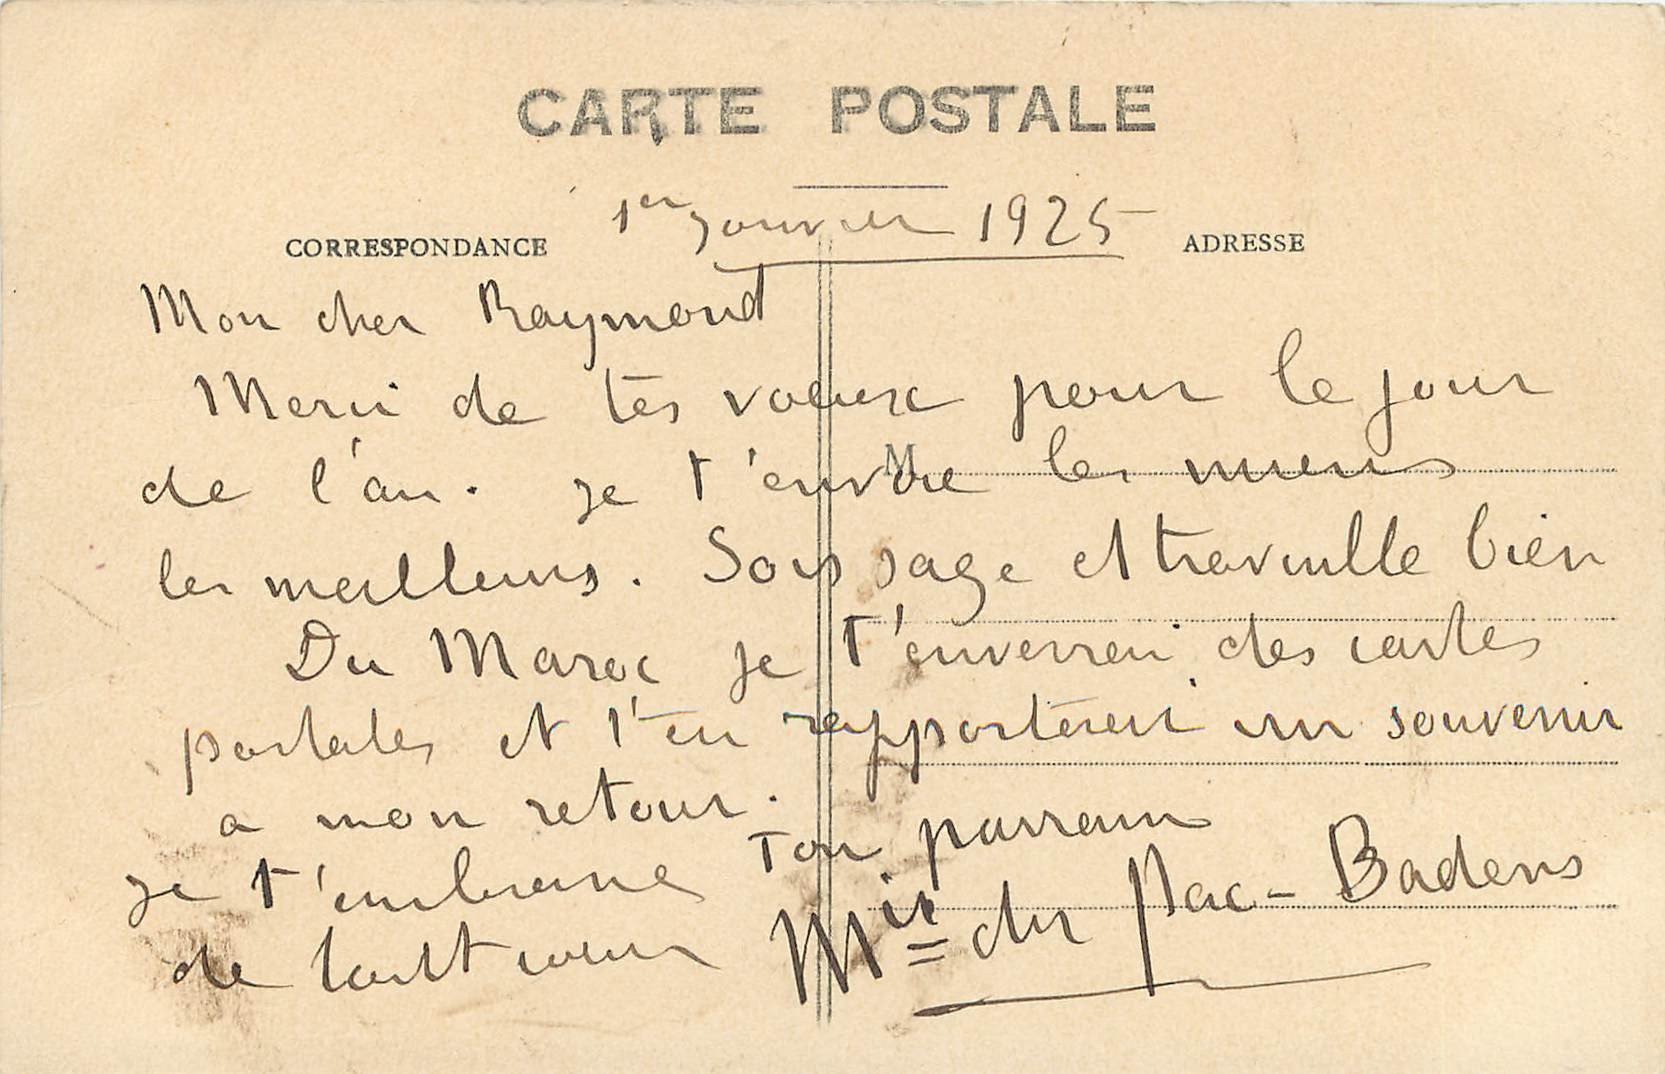 CARTE POSTALE
1er Janvier 1925
CORRESPONDANCE
ADRESSE
Mon cher Raymond
Merci de tes voeux pour le jour
de l'an. Je t'envoie les miens
M
les meilleurs. Sois sage et travaille bien
Du Maroc je t'enverrai des cartes
postales et t'en rapporterai un souvenir
a mon retour.
Ton parrain
Je t'embrasse
de tout coeur
Mis du Pac-Badens